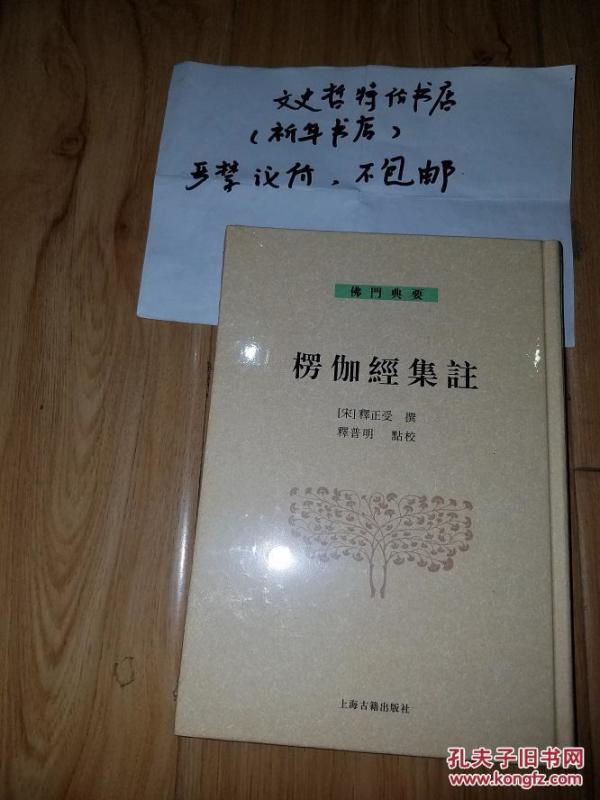 文史哲特价书店
（祈年书店）
严禁议价，不包邮
佛門典要
楞伽經集註
[宋]釋正受 撰
釋普明 點校
上海古籍出版社
孔夫子旧书网
www.kongfz.com